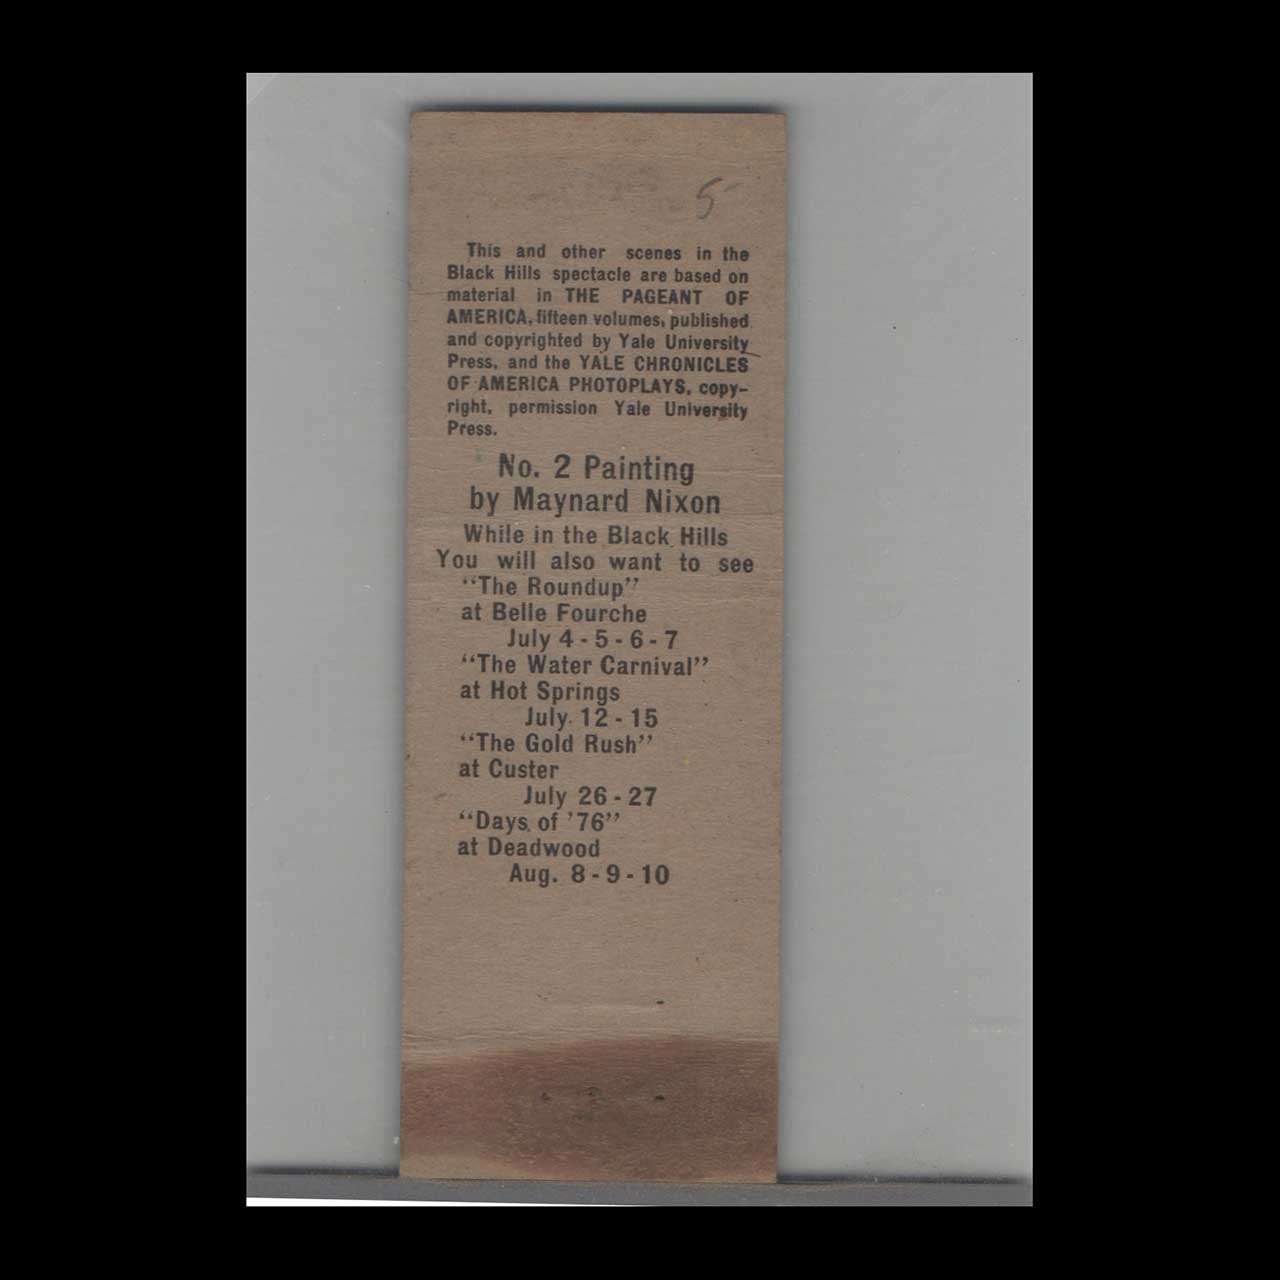 5
This and other scenes in the
Black Hills spectacle are based on
material in THE PAGEANT OF
AMERICA, fifteen volumes, published
and copyrighted by Yale University
Press, and the YALE CHRONICLES
OF AMERICA PHOTOPLAYS, copy-
right, permission Yale University
Press.
No. 2 Painting
by Maynard Nixon
While in the Black Hills
You will also want to see
“The Roundup”
at Belle Fourche
July 4 - 5 - 6 - 7
“The Water Carnival”
at Hot Springs
July 12 - 15
“The Gold Rush”
at Custer
July 26 - 27
“Days of ’76”
at Deadwood
Aug. 8 - 9 - 10